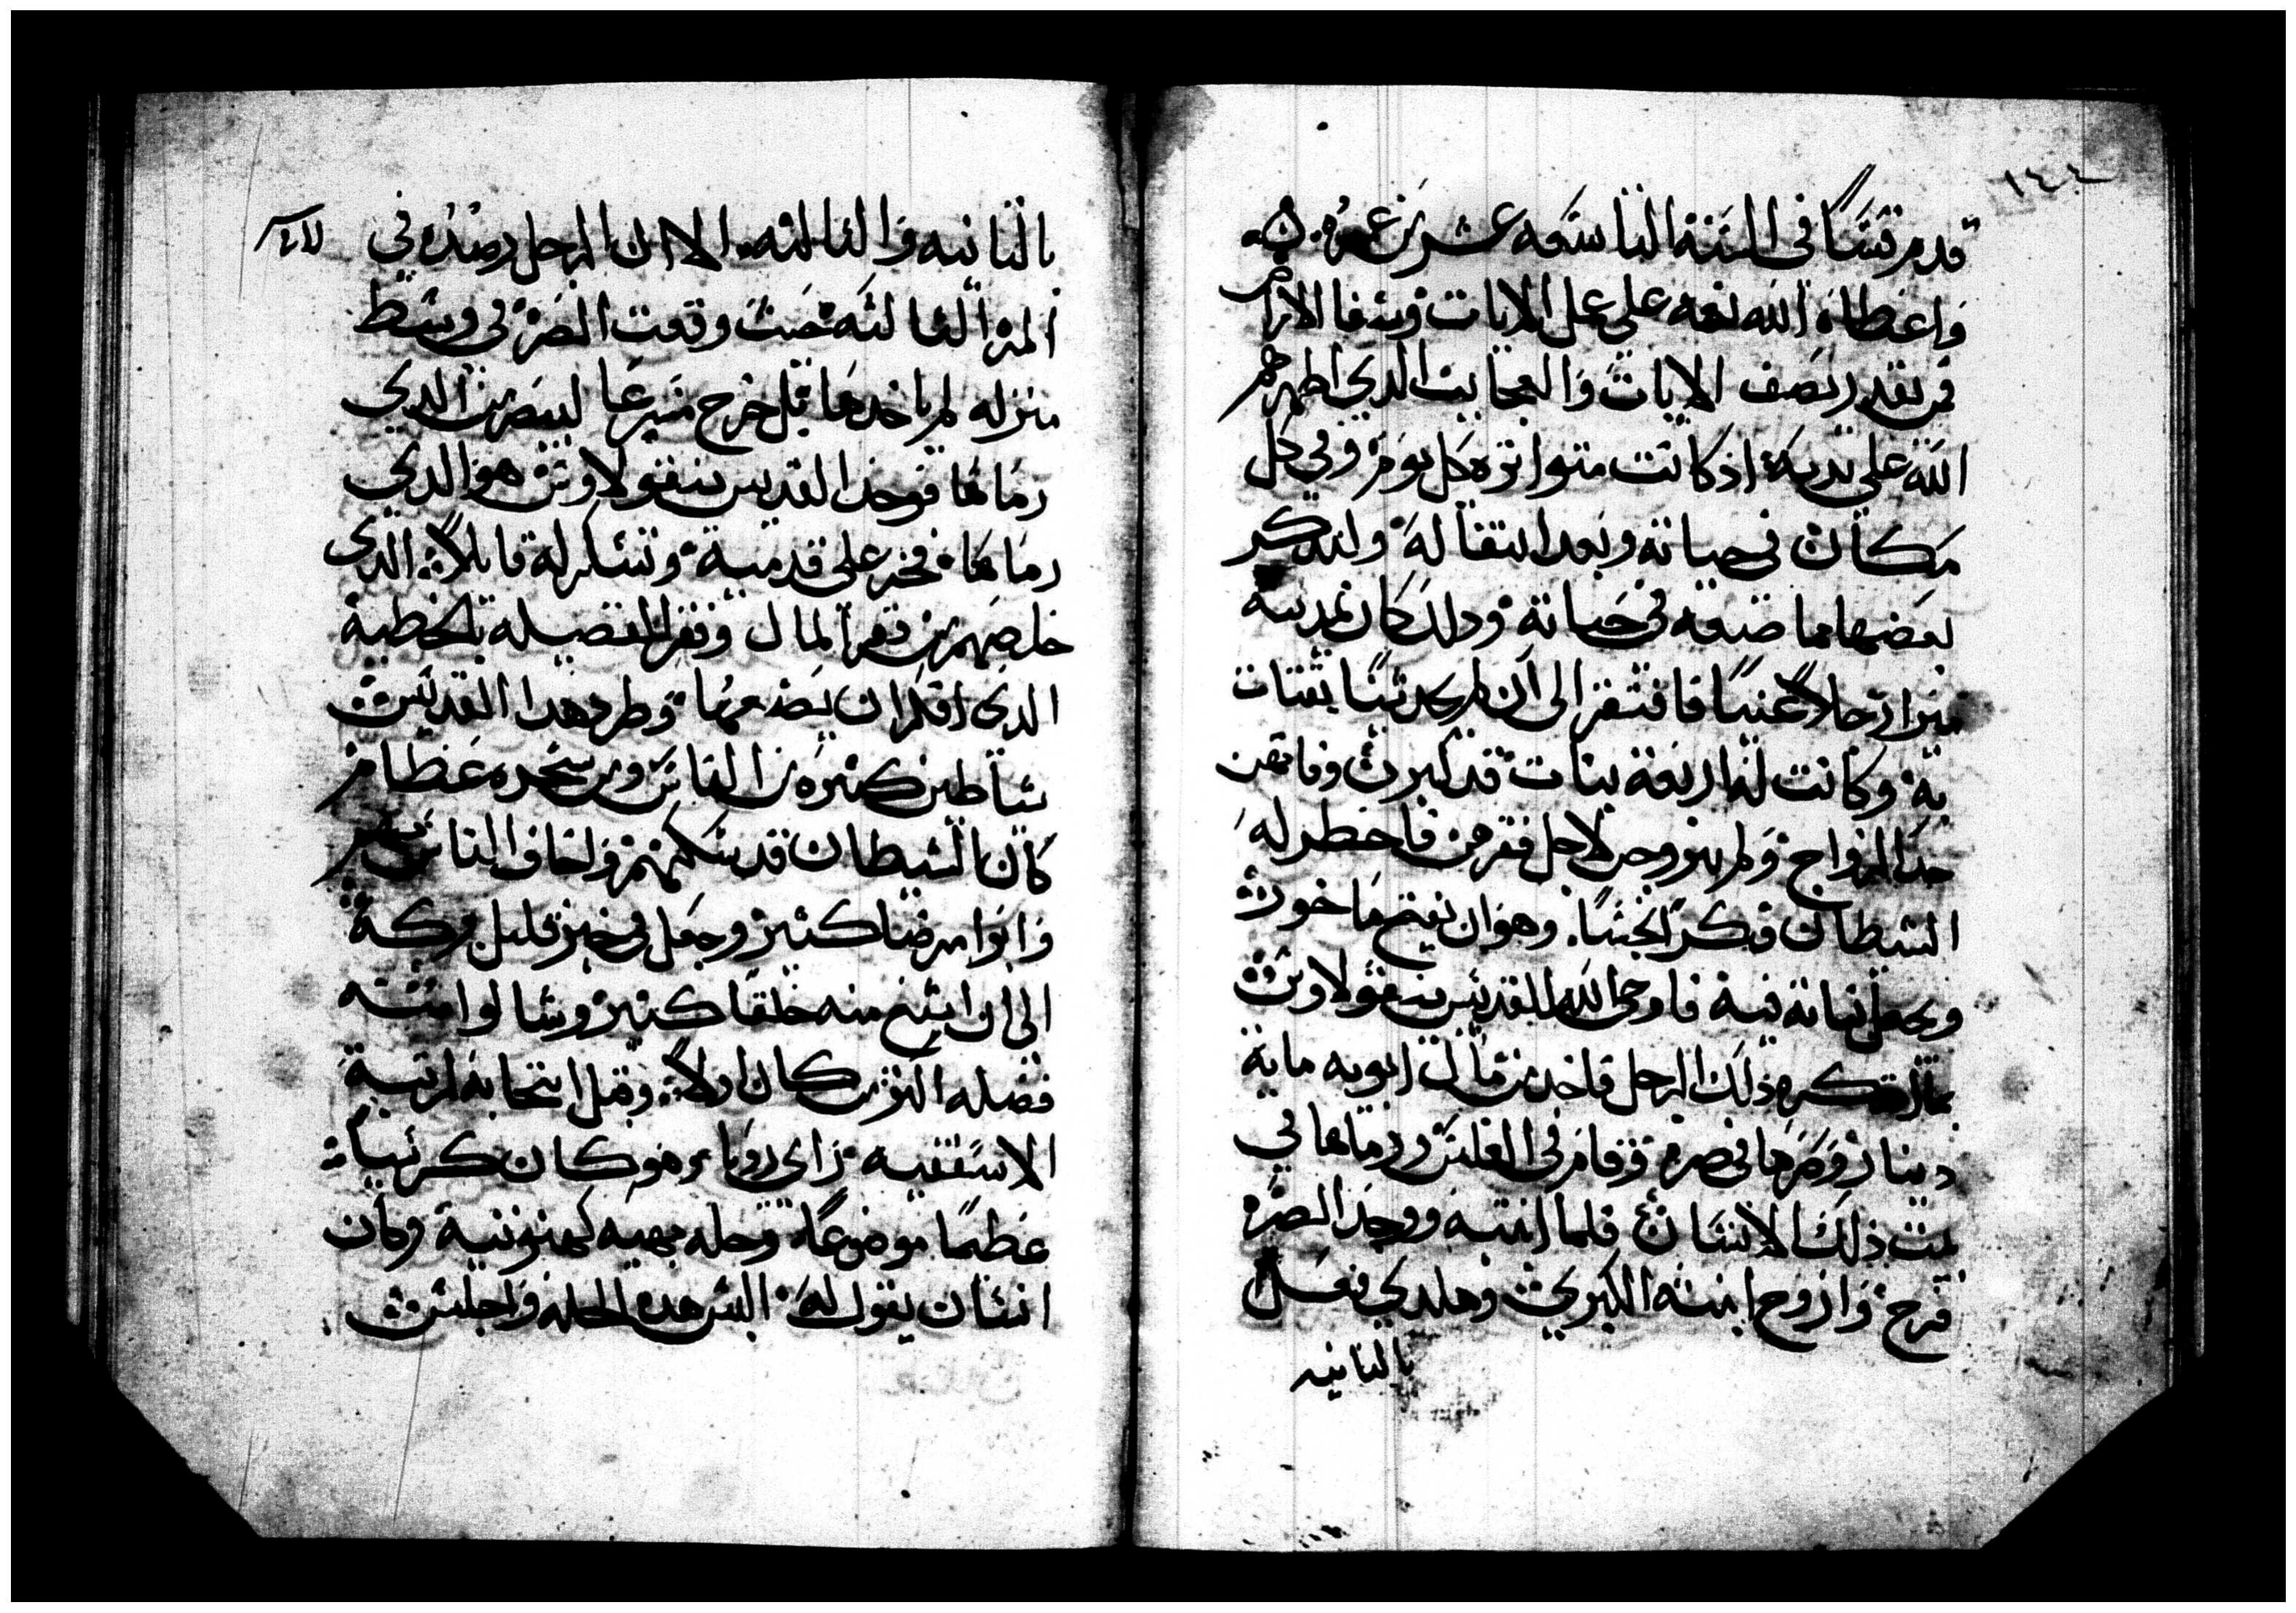 ١٤٤
قدم قسًا في السنة التاسعة عشر من عمره
واعطاه الله نعمه على عمل الايات وشفا الامراض
فمن يقدر يصف الايات والعجايب الذي اظهرهم
الله على يديه اذ كانت متواتره كل يوم وفي كل
مكان في حياته وبعد انتقاله واندكر
بعضها مما صنعه في حياته ودلك كان بمدينة
ميرا رجلاً غنيًا فافتقر الى ان لم يجد شيًا يقتات
به وكانت له اربعة بنات قد كبرن وفاتهن
حد الزواج ولم يتزوجن لاجل فقرهن فاخطر له
الشيطان فكرًا نجسًا وهو ان يفتح ماخورًا
ويجعل بناته فيه فاوحى الله للقديس نيقولاوس
بما فكره ذلك الرجل فاخد من مال ابويه ماية
دينار وصرها في صره وقام في الغلس ورماها في
بيت ذلك الانسان فلما انتبه ووجد الصره
فرح وازوج ابنته الكبرى وهكدي فعل
بالثانيه
بالثانيه والثالثه الا ان الرجل رصده في
المره الثالثه حيث وقعت الصره في وسط
منزله لم ياخدها بل خرج مسرعًا ليبصر من الدي
رماها فوجد القديس نيقولاوس هو الدي
رماها فخر على قدميه وتشكر له قايلاً الدي
خلصهم من فقر المال وفقر الفضيله بالخطية
الدي افكر ان يصنعها وطرد هدا القديس
شياطين كثيره من الناس ومن شجره عظامر
كان الشيطان قد سكنهم ولخاف الناس
وابرا مرضا كثير وجعل في خبز قليل بركة
الى ان اشبع منه خلقًا كثير وشالوا منه
فضله اكثر من كان اولاً وقبل انتخابه لرتبة
الاسقفيه راى رويا وهو كان كرسيًا
عظيمًا موضوعًا وحله بهيه كهنوتية وكان
انسان يقول له البس هده الحله واجلس